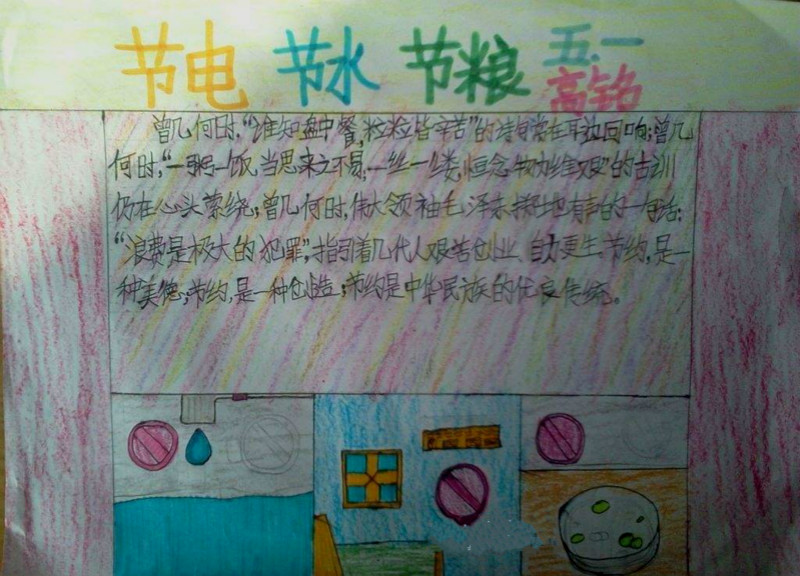 节电 节水 节粮 五.一
高铭
曾几何时,“谁知盘中餐,粒粒皆辛苦”的诗句常在耳边回响;曾几
何时,“一粥一饭,当思来之不易,一丝一缕,恒念物力维艰”的古训
仍在心头萦绕;曾几何时,伟大领袖毛泽东掷地有声的一句话:
“浪费是极大的犯罪”,指引着几代人艰苦创业、自力更生。节约,是一
种美德;节约,是一种创造;节约是中华民族的优良传统。